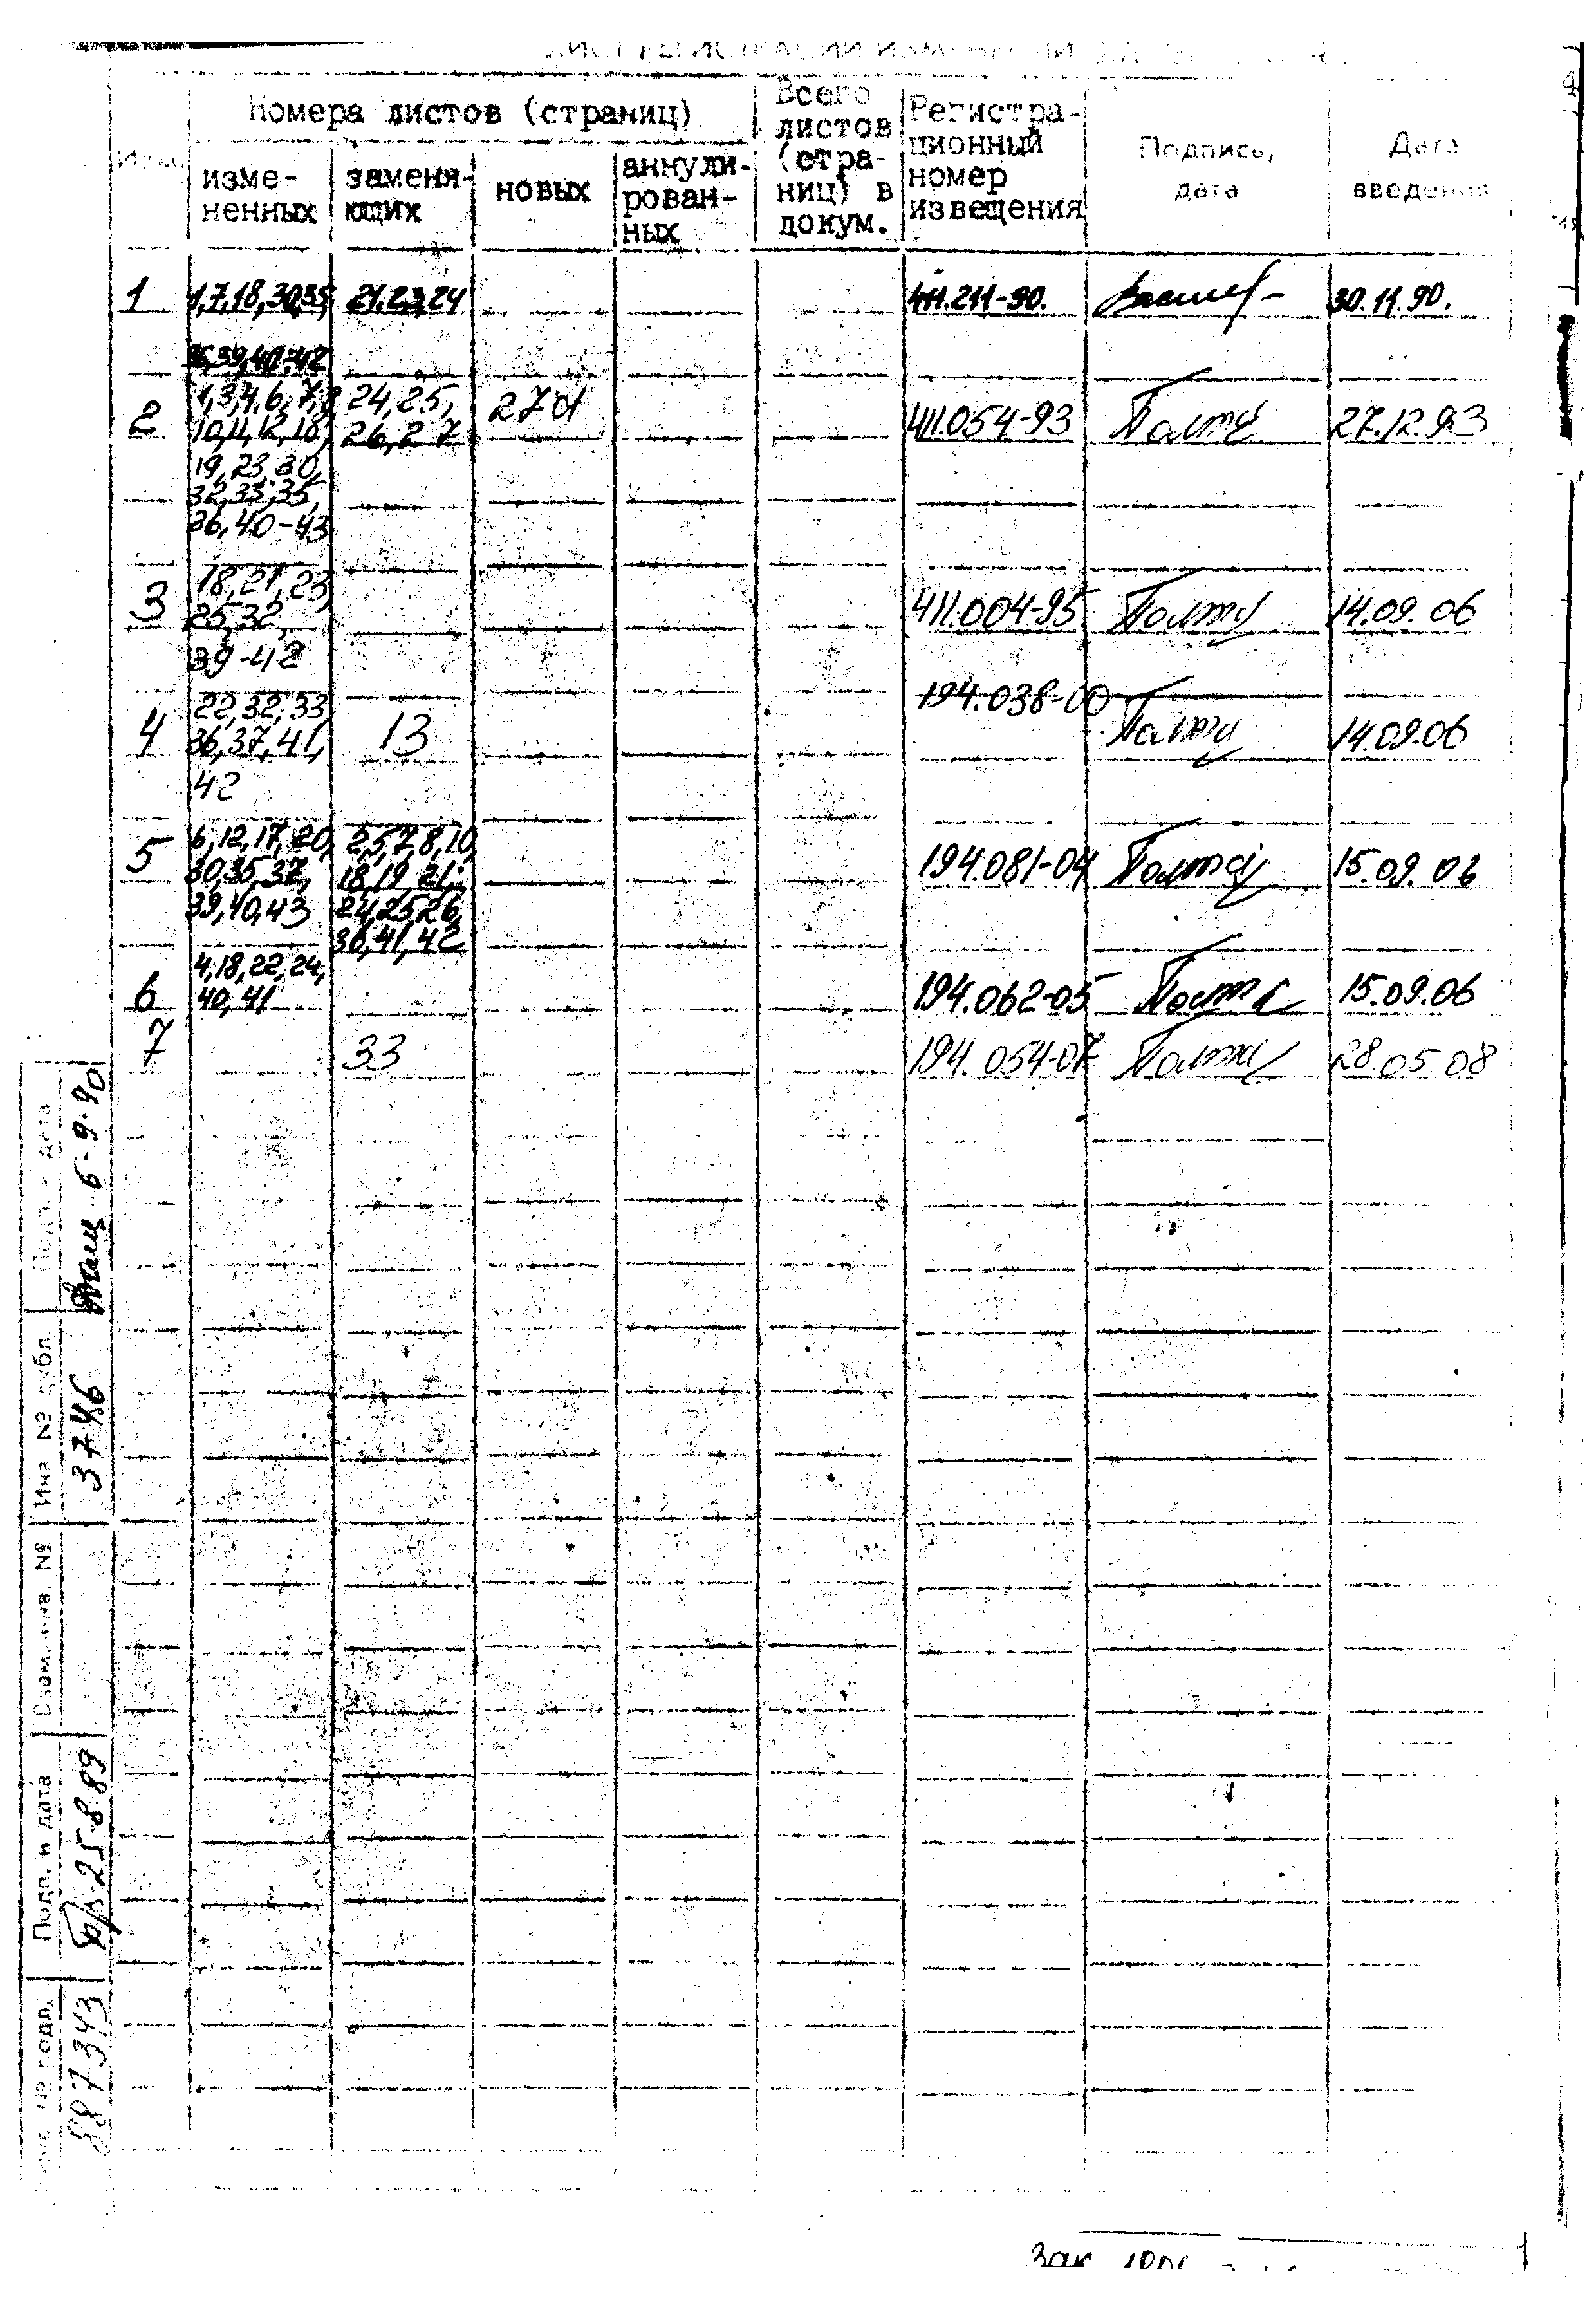 Номера листов (страниц)
Всего листов (стра-ниц) в докум.
Регистра-ционный номер извещения
Подпись, дата
Дата введения
Изм.
изме-ненных
заменя-ющих
новых
аннули-рован-ных
1 1,7,18,30,35, 21,23,24 411.211-90. 30.11.90.
36,39,40-42
1,3,4,6,7,8 24,25, 27а
2 10,11,12,18, 26,27 411.054-93 27.12.93
19,23,30,
32,33,35,
36,40-43
18,21,23
3 25,32, 411.004-95 14.09.06
39-42
22,32,33, 194.038-00
4 36,37,41, 13 14.09.06
42
5 6,12,17,20, 2,5,7,8,10, 194.081-04 15.09.06
30,35,37, 18,19,21,
39,40,43 24,25,26,
36,41,42
4,18,22,24,
6 40,41 194.062-05 15.09.06
7 33 194.054-07 28.05.08
Подп. и дата
6-9-90
Инв № дубл
3746
Взам. инв. №
Подп. и дата
25.8.89
Инв. № подл.
887343
Зак